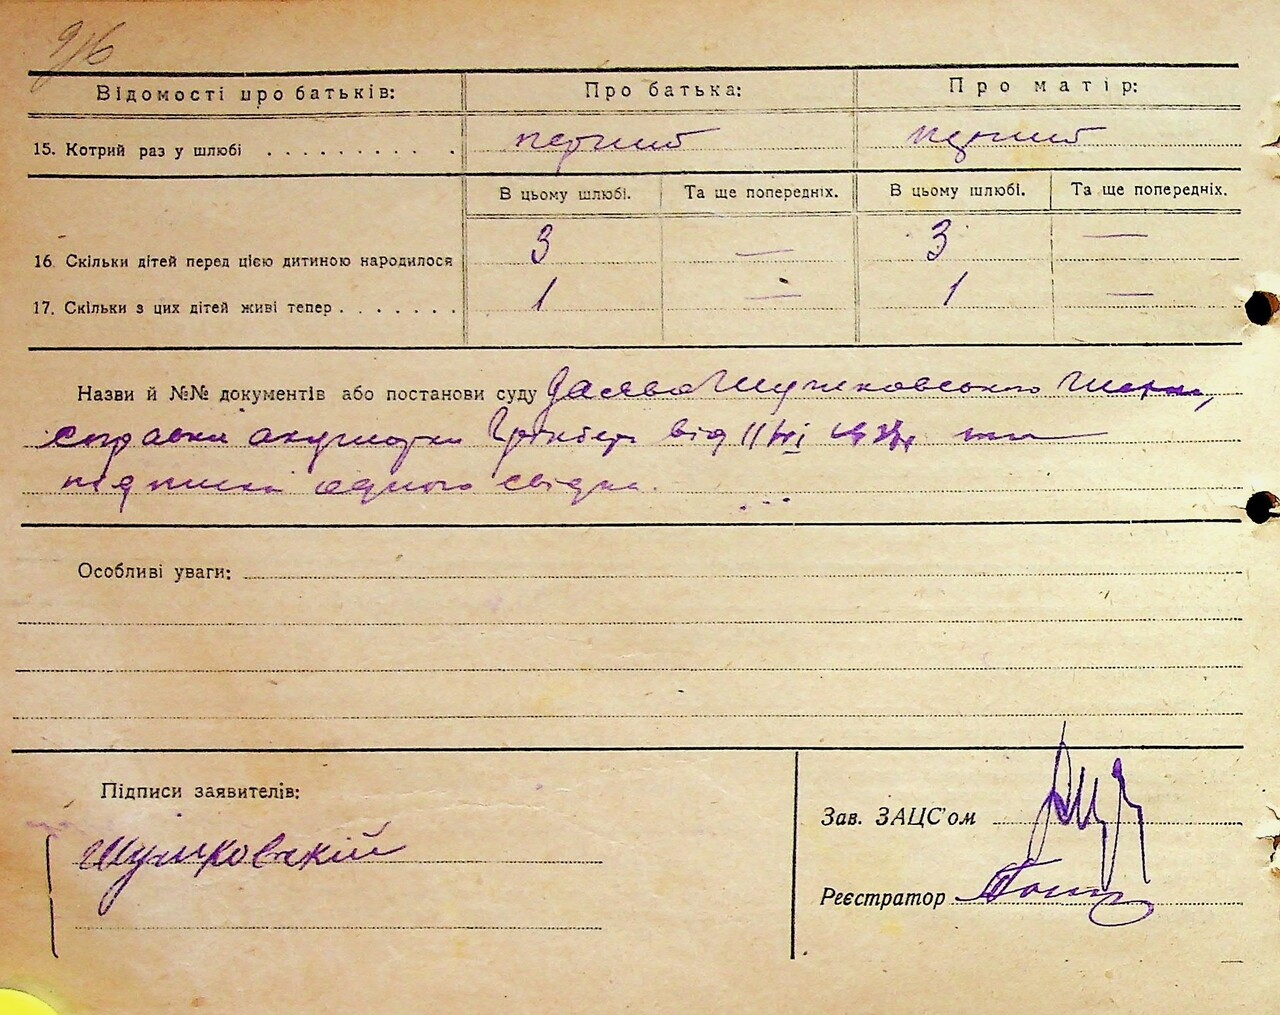 96
Відомості про батьків: Про батька: Про матір:
15. Котрий раз у шлюбі . . . . . . . . . . перший перший
В цьому шлюбі. Та ще попередніх. В цьому шлюбі. Та ще попередніх.
16. Скільки дітей перед цією дитиною народилося 3 — 3 —
17. Скільки з цих дітей живі тепер . . . . . . . 1 — 1 —
Назви й №№ документів або постанови суду Заява
справка акушерки від 11/VI та
підписка одного свідка.
Особливі уваги:
Підписи заявителів:
Зав. ЗАЦС'ом
Реєстратор